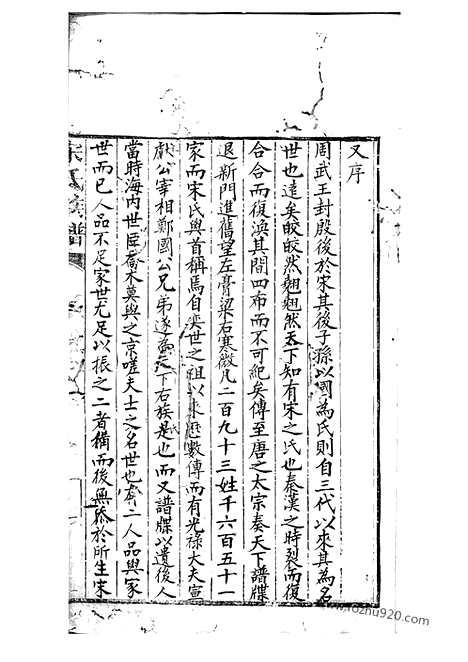 又序
周武王封殷後於宋其後子孫以國為氏則自三代以來其為名
世也遠矣皎皎然翹翹然天下知有宋之氏也秦漢之時裂而復
合合而復渙其間四布而不可紀矣傳至唐之太宗奏天下譜牒
退新門進舊望左膏粱右寒微凡二百九十三姓千六百五十一
家而宋氏與首稱焉自奕世之祖以來歷數傳而有光祿大夫宣
獻公宰相鄭國公兄弟遂為天下右族是也而又譜牒以遺後人
當時海内世臣喬木莫與之京嗟夫士之名世也有二人品與家
世而已人品不足家世尤足以振之二者備而後無忝於所生宋
宋氏族譜
www.fozhu920.com